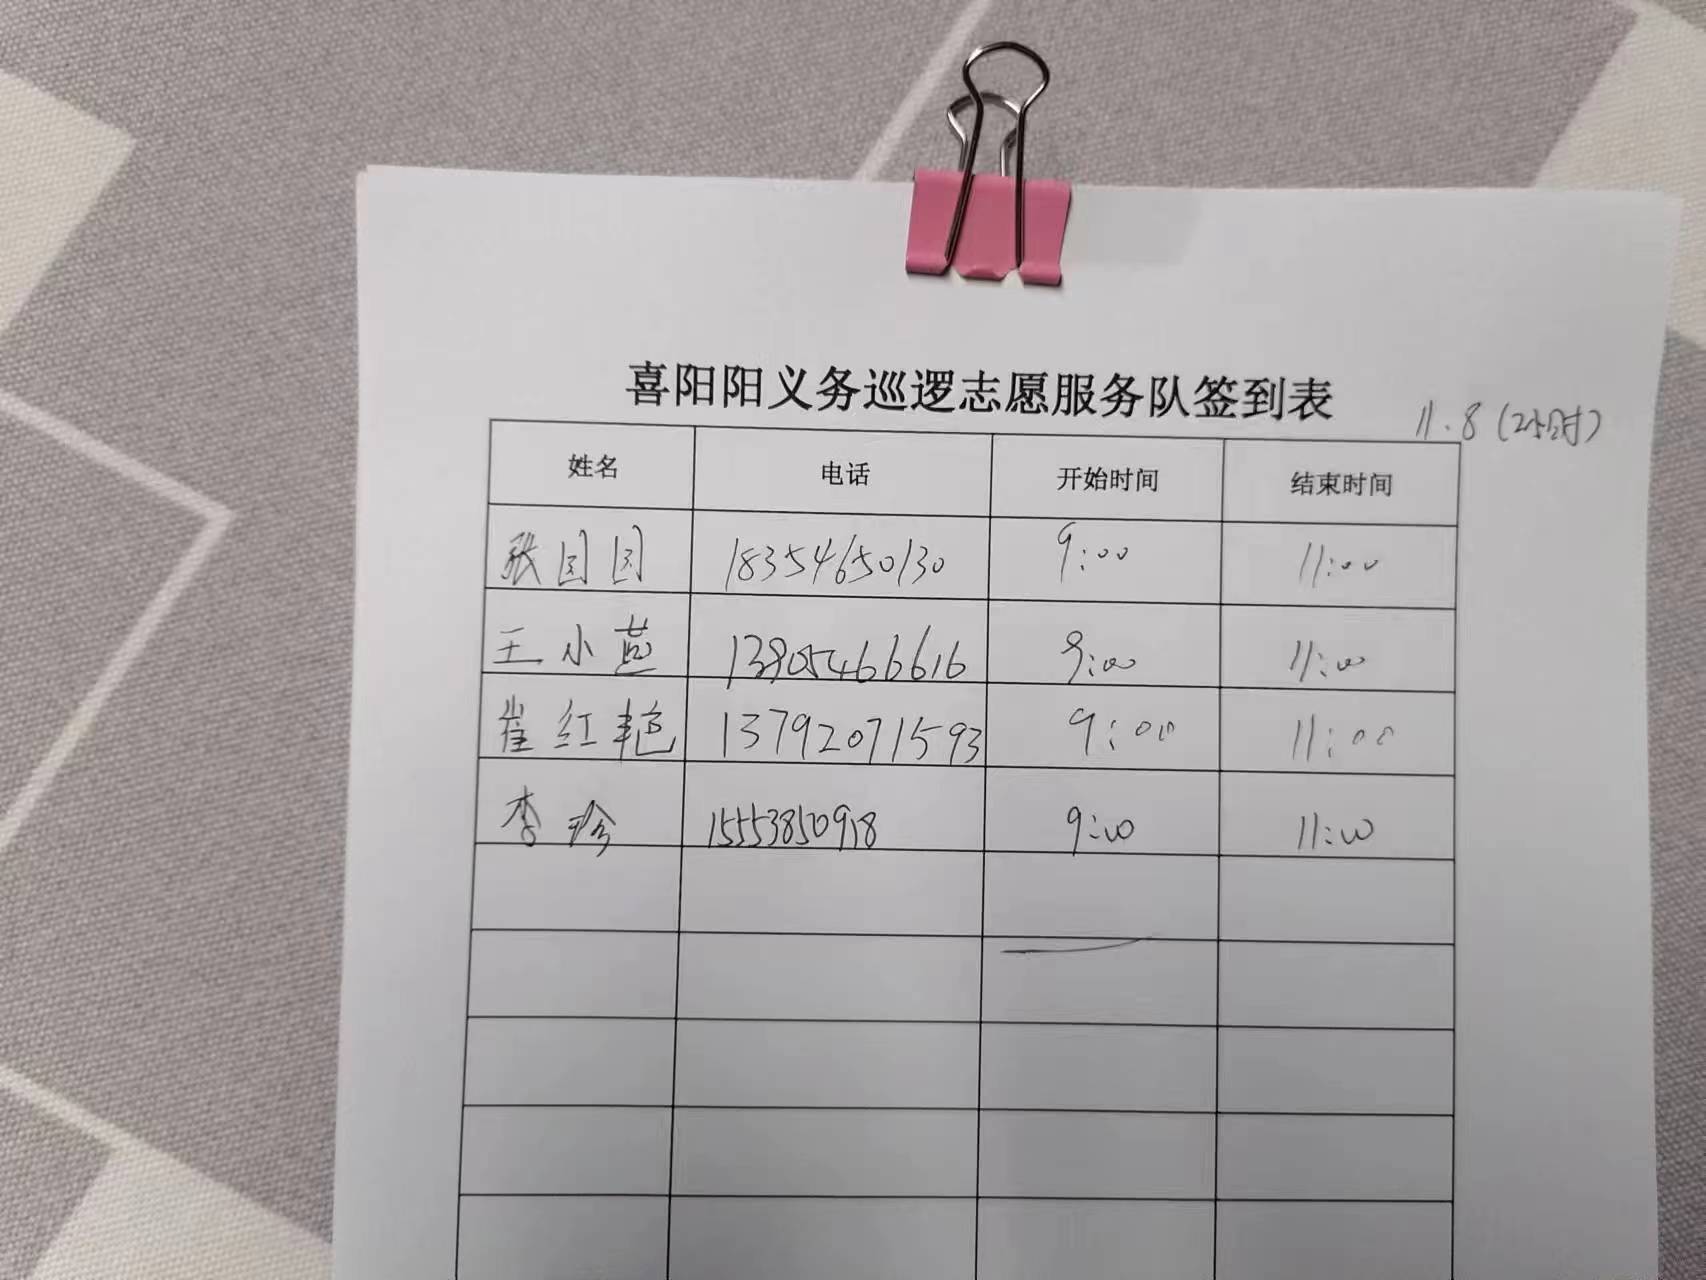 喜阳阳义务巡逻志愿服务队签到表
11.8(2小时)
姓名 电话 开始时间 结束时间
张园园 18354650130 9:00 11:00
王小燕 13905466616 9:00 11:00
崔红艳 13792071593 9:00 11:00
李珍 15553850918 9:00 11:00